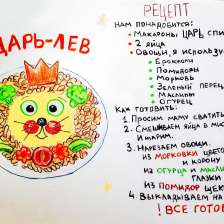 ЦАРЬ-ЛЕВ
РЕЦЕПТ
НАМ ПОНАДОБИТСЯ:
МАКАРОНЫ ЦАРЬ
2 ЯЙЦА
ОВОЩИ, Я
БРОККОЛИ
ПОМИДОРЫ
МОРКОВЬ
ЗЕЛЕНЫЙ
МАСЛИНЫ
ОГУРЕЦ
КАК ГОТОВИТЬ:
1. ПРОСИМ МАМУ
2. СМЕШИВАЕМ ЯЙЦА В
И ЖАРИМ.
3. НАРЕЗАЕМ ОВОЩИ.
ИЗ МОРКОВКИ
И КОРОНУ
ИЗ ОГУРЦА И
ГЛАЗКИ
ИЗ ПОМИДОР
4. ВЫКЛАДЫВАЕМ НА
! ВСЕ